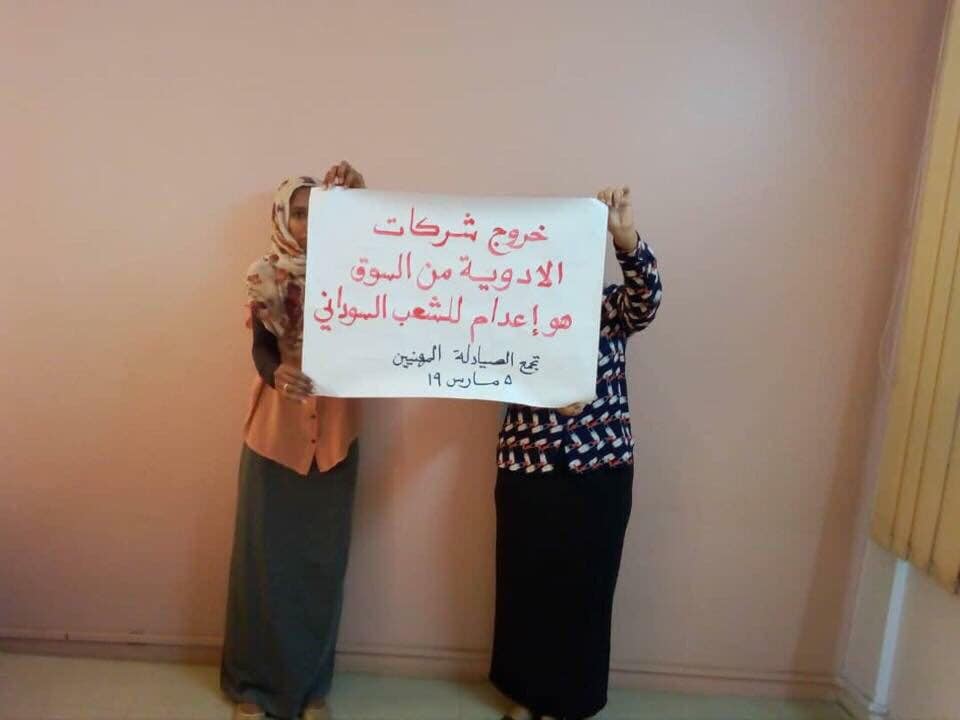 خروج شركات
الادوية من السوق
هو إعدام للشعب السوداني
تجمع الصيادلة المهنيين
٥ مارس ١٩